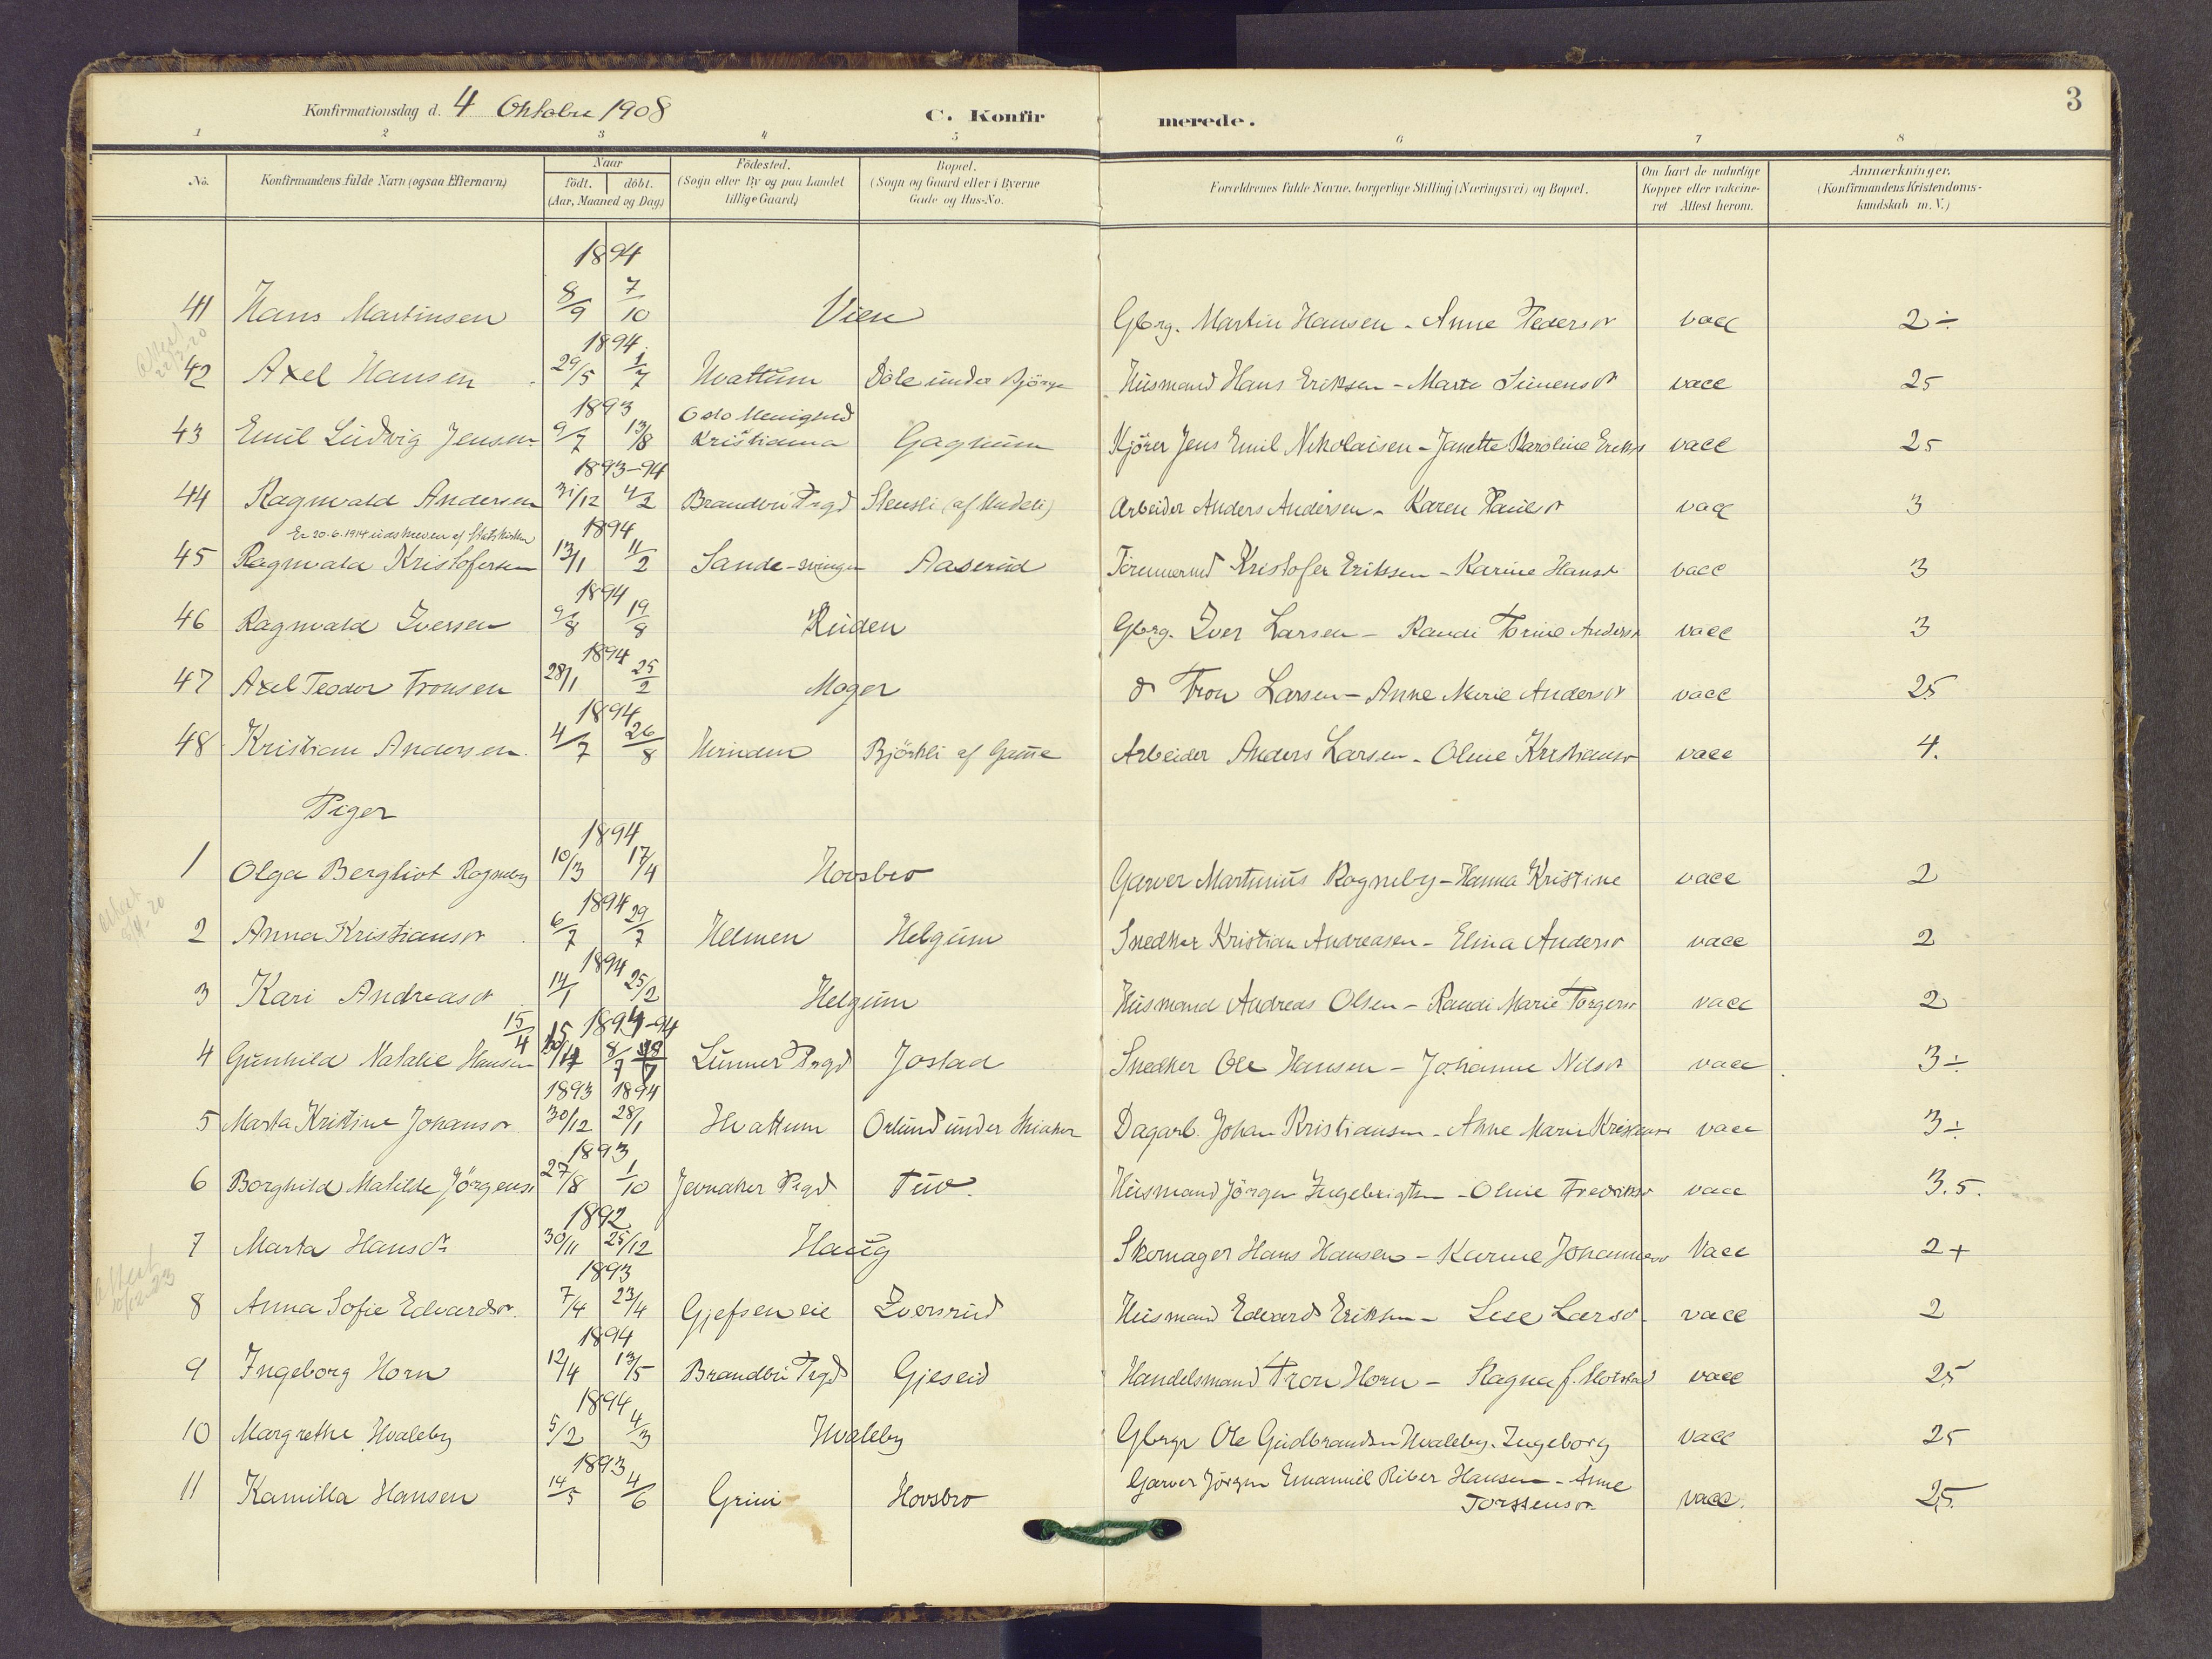 Konfirmationsdag d. 4 Oktober 1908
C. Konfirmerede.
3
1 2 3 4 5 6 7 8
No. Konfirmandens fulde Navn (ogsaa Efternavn) Naar födt. döbt. (Aar, Maaned og Dag) Födested. (Sogn eller By og paa Landet tillige Gaard) Bopæl. (Sogn og Gaard eller i Byerne Gade og Hus-No. Forældrenes fulde Navne, borgerlige Stilling (Næringsvei) og Bopæl. Om havt de naturlige Kopper eller vakcineret Attest herom. Anmærkninger. (Konfirmandens Kristendomskundskab m. V.)
1894
41 Hans Martinsen 8/9 7/10 Vien Gbrg. Martin Hansen - Anne Pedersdr vacc 2÷
1894
42 Axel Hansen 29/5 1/7 Hvattum Döle under Bjørge Husmand Hans Eriksen - Marte Simensdr vacc 25
1893 Oslo Menighed
43 Emil Ludvig Jensen 9/7 13/8 Kristiania Gagnum Kjörer Jens Emil Nikolaisen - Janette Karoline Eriksdr vacc 25
1893-94
44 Ragnvald Andersen 31/12 4/2 Brandbu Prgd Stensli Arbeider Anders Andersen - Karen vacc 3
Er 20-6-1914 udtraadt af Statskirken 1894
45 Ragnvald Kristofersen 13/1 11/2 Sande-svingen Aaserud Tömmermd Kristofer Eriksen - Karine Hansdr vacc 3
1894
46 Ragnvald Iversen 9/8 19/8 Ruden Gbrg. Iver Larsen - Randi Torine Andersdr vacc 3
1894
47 Axel Teodor Tronsen 28/1 25/2 Moger do Tron Larsen - Anne Marie Andersdr vacc 25
1894
48 Kristian Andersen 4/7 26/8 Hvinden Björkli af Gamme Arbeider Anders Larsen - Oline Kristiansdr vacc 4.
Piger
1894
1 Olga Bergliot Rogneby 10/3 17/4 Hovsbro Garver Martinius Rogneby - Hanna Kristine vacc 2
1894
2 Anna Kristiansdr 6/7 29/7 Helmen Helgum Snedker Kristian Andreasen - Elina Andersdr vacc 2
1894
3 Kari Andreasdr 14/1 25/2 Helgum Husmand Andreas Olsen - Randi Marie Torgersdr vacc 2
15/4 1894-94
4 Gunhild Natalie Hansen 8/7 Lunner Prgd Jostad Snedker Ole Hansen - Johanne Nilsdr vacc 3÷
1893 1894
5 Marta Kristine Johansdr 30/12 28/1 Hvattum Orlund under Skiaker Dagarb. Johan Kristiansen - Anne Marie Kristiansdr vacc 3÷
1893
6 Borghild Matilde Jörgensdr 27/8 1/10 Jevnaker Prgd Tuv. Husmand Jörgen Ingebrigtsen - Oline Fredriksdr vacc 3.5.
1892
7 Marta Hansdr 30/11 25/12 Haug Skomager Hans Hansen - Karine Johannesdr Vacc 2+
1893
8 Anna Sofie Edvardsdr 7/4 23/4 Gjefsen eie Iversrud Husmand Edvard Eriksen - Lise Larsdr vacc 2
1894
9 Ingeborg Horn 12/4 13/5 Brandbu Prgd Gjeseid Handelsmand Tron Horn - Ragna f. vacc 25
1894
10 Margrethe Hvaleby 5/2 4/3 Hvaleby Gbrgr Ole Gudbrandsen Hvaleby. Ingeborg vacc 25
1893
11 Kamilla Hansen 14/5 4/6 Grini Hovsbro Garver Jörgen Emanuel Riber Hansen - Anne
Torstensdr vacc. 2,5.